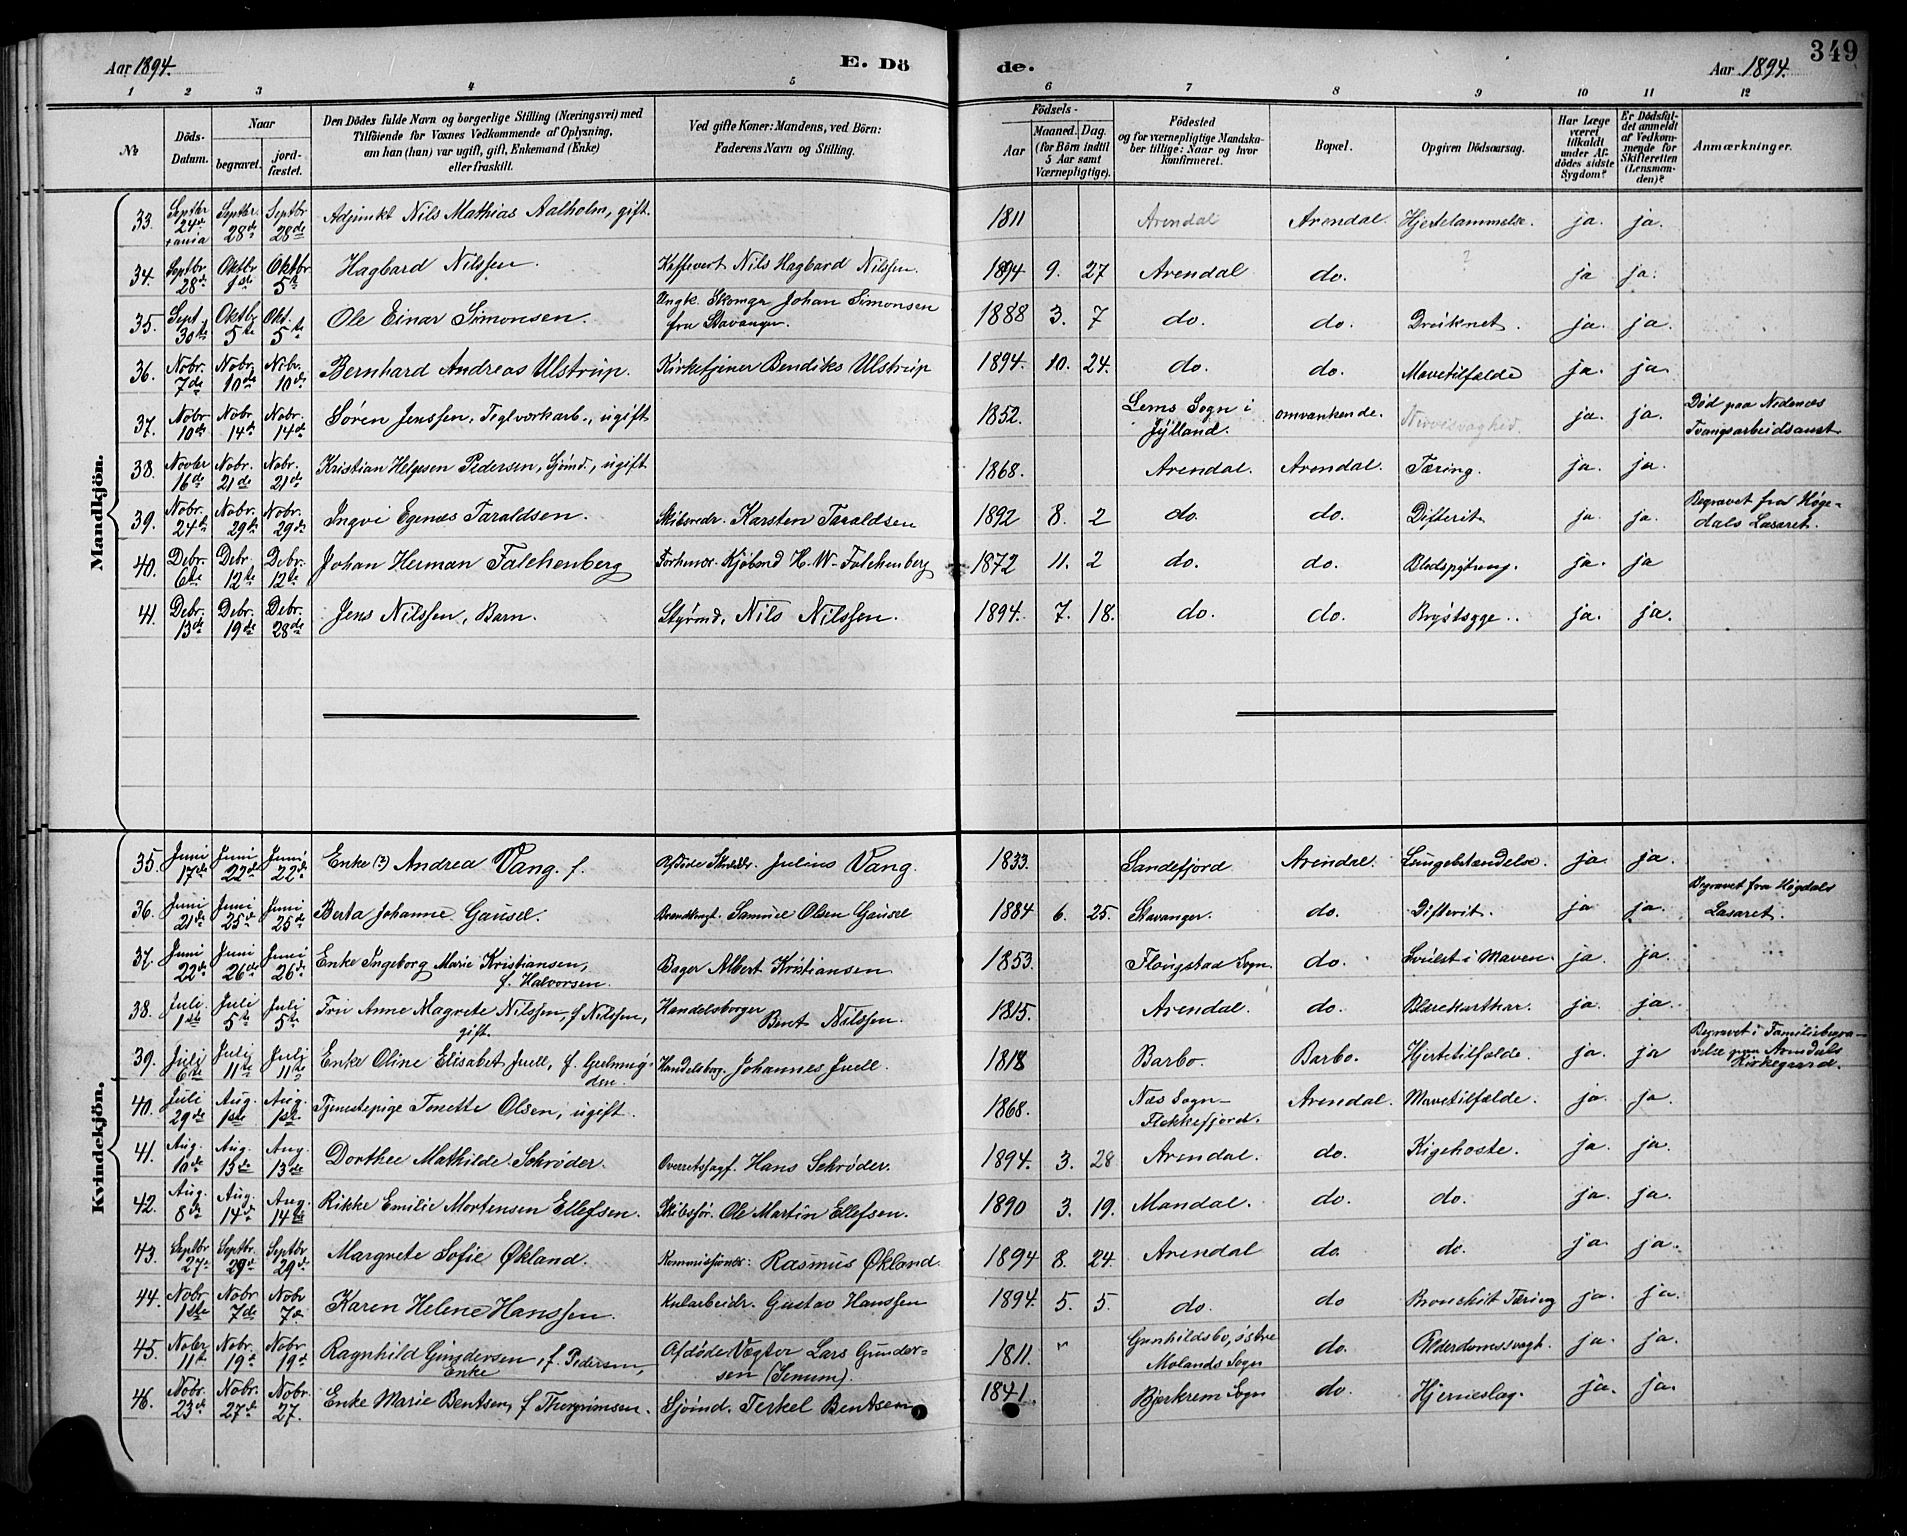 Aar 1894. E. Dö de. Aar 1894. 349
1 2 3 4 5 6 7 8 9 10 11 12
No Döds-Datum. Naar begravet. jordfæstet. Den Dödes fulde Navn og borgerlige Stilling (Næringsvei) med Tilföiende for Voxnes Vedkommende af Oplysning, om han (hun) var ugift, gift, Enkemand (Enke) eller fraskilt. Ved gifte Koner: Mandens, ved Börn: Faderens Navn og Stilling. Födsels- Aar Maaned. Dag. (for Börn indtil 5 Aar samt Værnepligtige). Födested og for værnepligtige Mandskaber tillige: Naar og hvor konfirmeret. Bopæl. Opgiven Dödsaarsag. Har Læge været tilkaldt under Afdödes sidste Sygdom? Er Dödsfaldet anmeldt af Vedkommende for Skifteretten (Lensmanden)? Anmærkninger.
Mandkjön.
33. Septbr 24de Septbr. 28de Septbr 28de Adjunkt Nils Mathias Aalholm, gift. 1811 Arendal Arendal. Hjertelammelse. ja. ja.
34. Septbr. 28de Oktbr 1ste Oktbr 5te Hagbard Nilssen. Kaffevert Nils Hagbard Nilssen. 1894 9. 27 Arendal do. ? ja ja.
35. Sept. 30te Oktbr 5te Okt. 5te Ole Einar Simonsen. Ungk. Skomgr Johan Simonsen fra Stavanger. 1888 3. 7 do. do. Druknet. ja. ja.
36. Nobr. 7de Nobr. 10de Nobr. 10de Bernhard Andreas Ulstrup. Kirketjener Bendiks Ulstrup 1894. 10. 24. do. do. Mavetilfælde ja. ja.
37. Nobr. 10de Nobr. 14de Nobr. 14de Søren Jenssen, Teglverkarb., ugift 1852. Lems Sogn i Jylland. omvankende. ja. ja. Død paa Nedenes Tvangsarbeidsanst.
38. Novbr 16de Nobr. 21de Nobr. 21de Kristian Helgesen Pedersen, Sjømd., ugift 1868. Arendal. Arendal. Tæring. ja. ja.
39. Nobr. 24de Nobr. 29de Nobr. 29de Ingvi Egenæs Taraldsen. Skibsredr. Karsten Taraldsen 1892 8. 2 do. do. Difterit. ja ja. Begravet fra Høgedals Lasaret.
40. Debr. 6te Debr. 12te Debr. 12te Johan Herman Falchenberg Forhenv. Kjøbmd H. W. Falchenberg 1872 11. 2 do. do. Blodspytning. ja. ja
41. Debr. 13de Debr. 19de Debr. 28de Jens Nilssen, Barn. Styrmd. Nils Nilssen. 1894. 7. 18. do. do. Brystsyge. ja. ja.
Kvindekjön.
35. Juni 17de Juni 22de Juni 22de Enke (?) Andrea Vang. f. Afdøde Julius Vang. 1833. Sandefjord Arendal. Lungebetændelse. ja. ja.
36. Juni 21de Juni 25de Juni 25de Berta Johanne Gausel. Samuel Olsen Gausel 1884 6. 25. Stavanger. do. Difterit. ja ja. Begravet fra Høgdals Lasaret.
37. Juni 22de Juni 26de Juni 26de Enke Ingeborg Marie Kristiansen, f. Halvorsen. Bager Albert Kristiansen 1853. Flougstad Sogn. do. Svulst i Maven ja. ja.
38. Juli 1ste Juli 5te Juli 5te Fru Anne Magrete Nilssen, f Nilssen, gift. Handelsborger Bent Nilssen. 1815. Arendal. do. Blærekatthar. ja. ja.
39. Juli 6te Juli 11te Juli 11te Enke Oline Elisabet Juell, f. Gulmugden. Handelsborg. Johannes Juell. 1818 Barbo. Barbo. Hjertetilfælde. ja. ja Begravet i Familiebegravelse paa Arendals Kirkegaard.
40. Juli 29de Aug. 1ste Aug. 1ste Tjenestepige Tonette Olsen, ugift. 1868. Næs Sogn-Flekkefjord. Arendal. Mavetilfælde. ja. ja.
41. Aug. 10de Aug. 13de Aug. 13de Dorthee Mathilde Schrøder. Overretssagf. Hans Schrøder. 1894. 3. 28 Arendal. do. Kigehoste. ja. ja.
42. Aug. 8de Aug. 14de Aug. 14de Rikke Emilie Mortensen Ellefsen. Skibsfør. Ole Martin Ellefsen. 1890 3. 19. Mandal. do. do. ja. ja.
43. Septbr 27de Septbr. 29de Septbr 29de Margrete Sofie Økland. Kommissionær: Rasmus Økland. 1894 8. 24. Arendal do. do. ja. ja.
44. Nobr. 1ste Nobr. 7de Nobr 7de Karen Helene Hanssen. Kularbeidr. Gustav Hanssen 1894. 5. 5. do. do Bronchit Tæring ja. ja.
45. Nobr 11te Nobr. 19de Nobr. 19de Ragnhild Gundersen, f. Pedersen, Enke Afdøde Vægter Lars Gundersen (Senum). 1811. " Gunhildsbo, østre Molands Sogn do. Alderdomssvagh. ja. ja.
46. Nobr. 23de Nobr. 27de Nobr. 27. Enke Marie Bentsen, f Thorgrimsen. Sjømd. Terkel Bentsen 1841. Bjerkrem Sogn do. Hjerneslag. ja. ja.